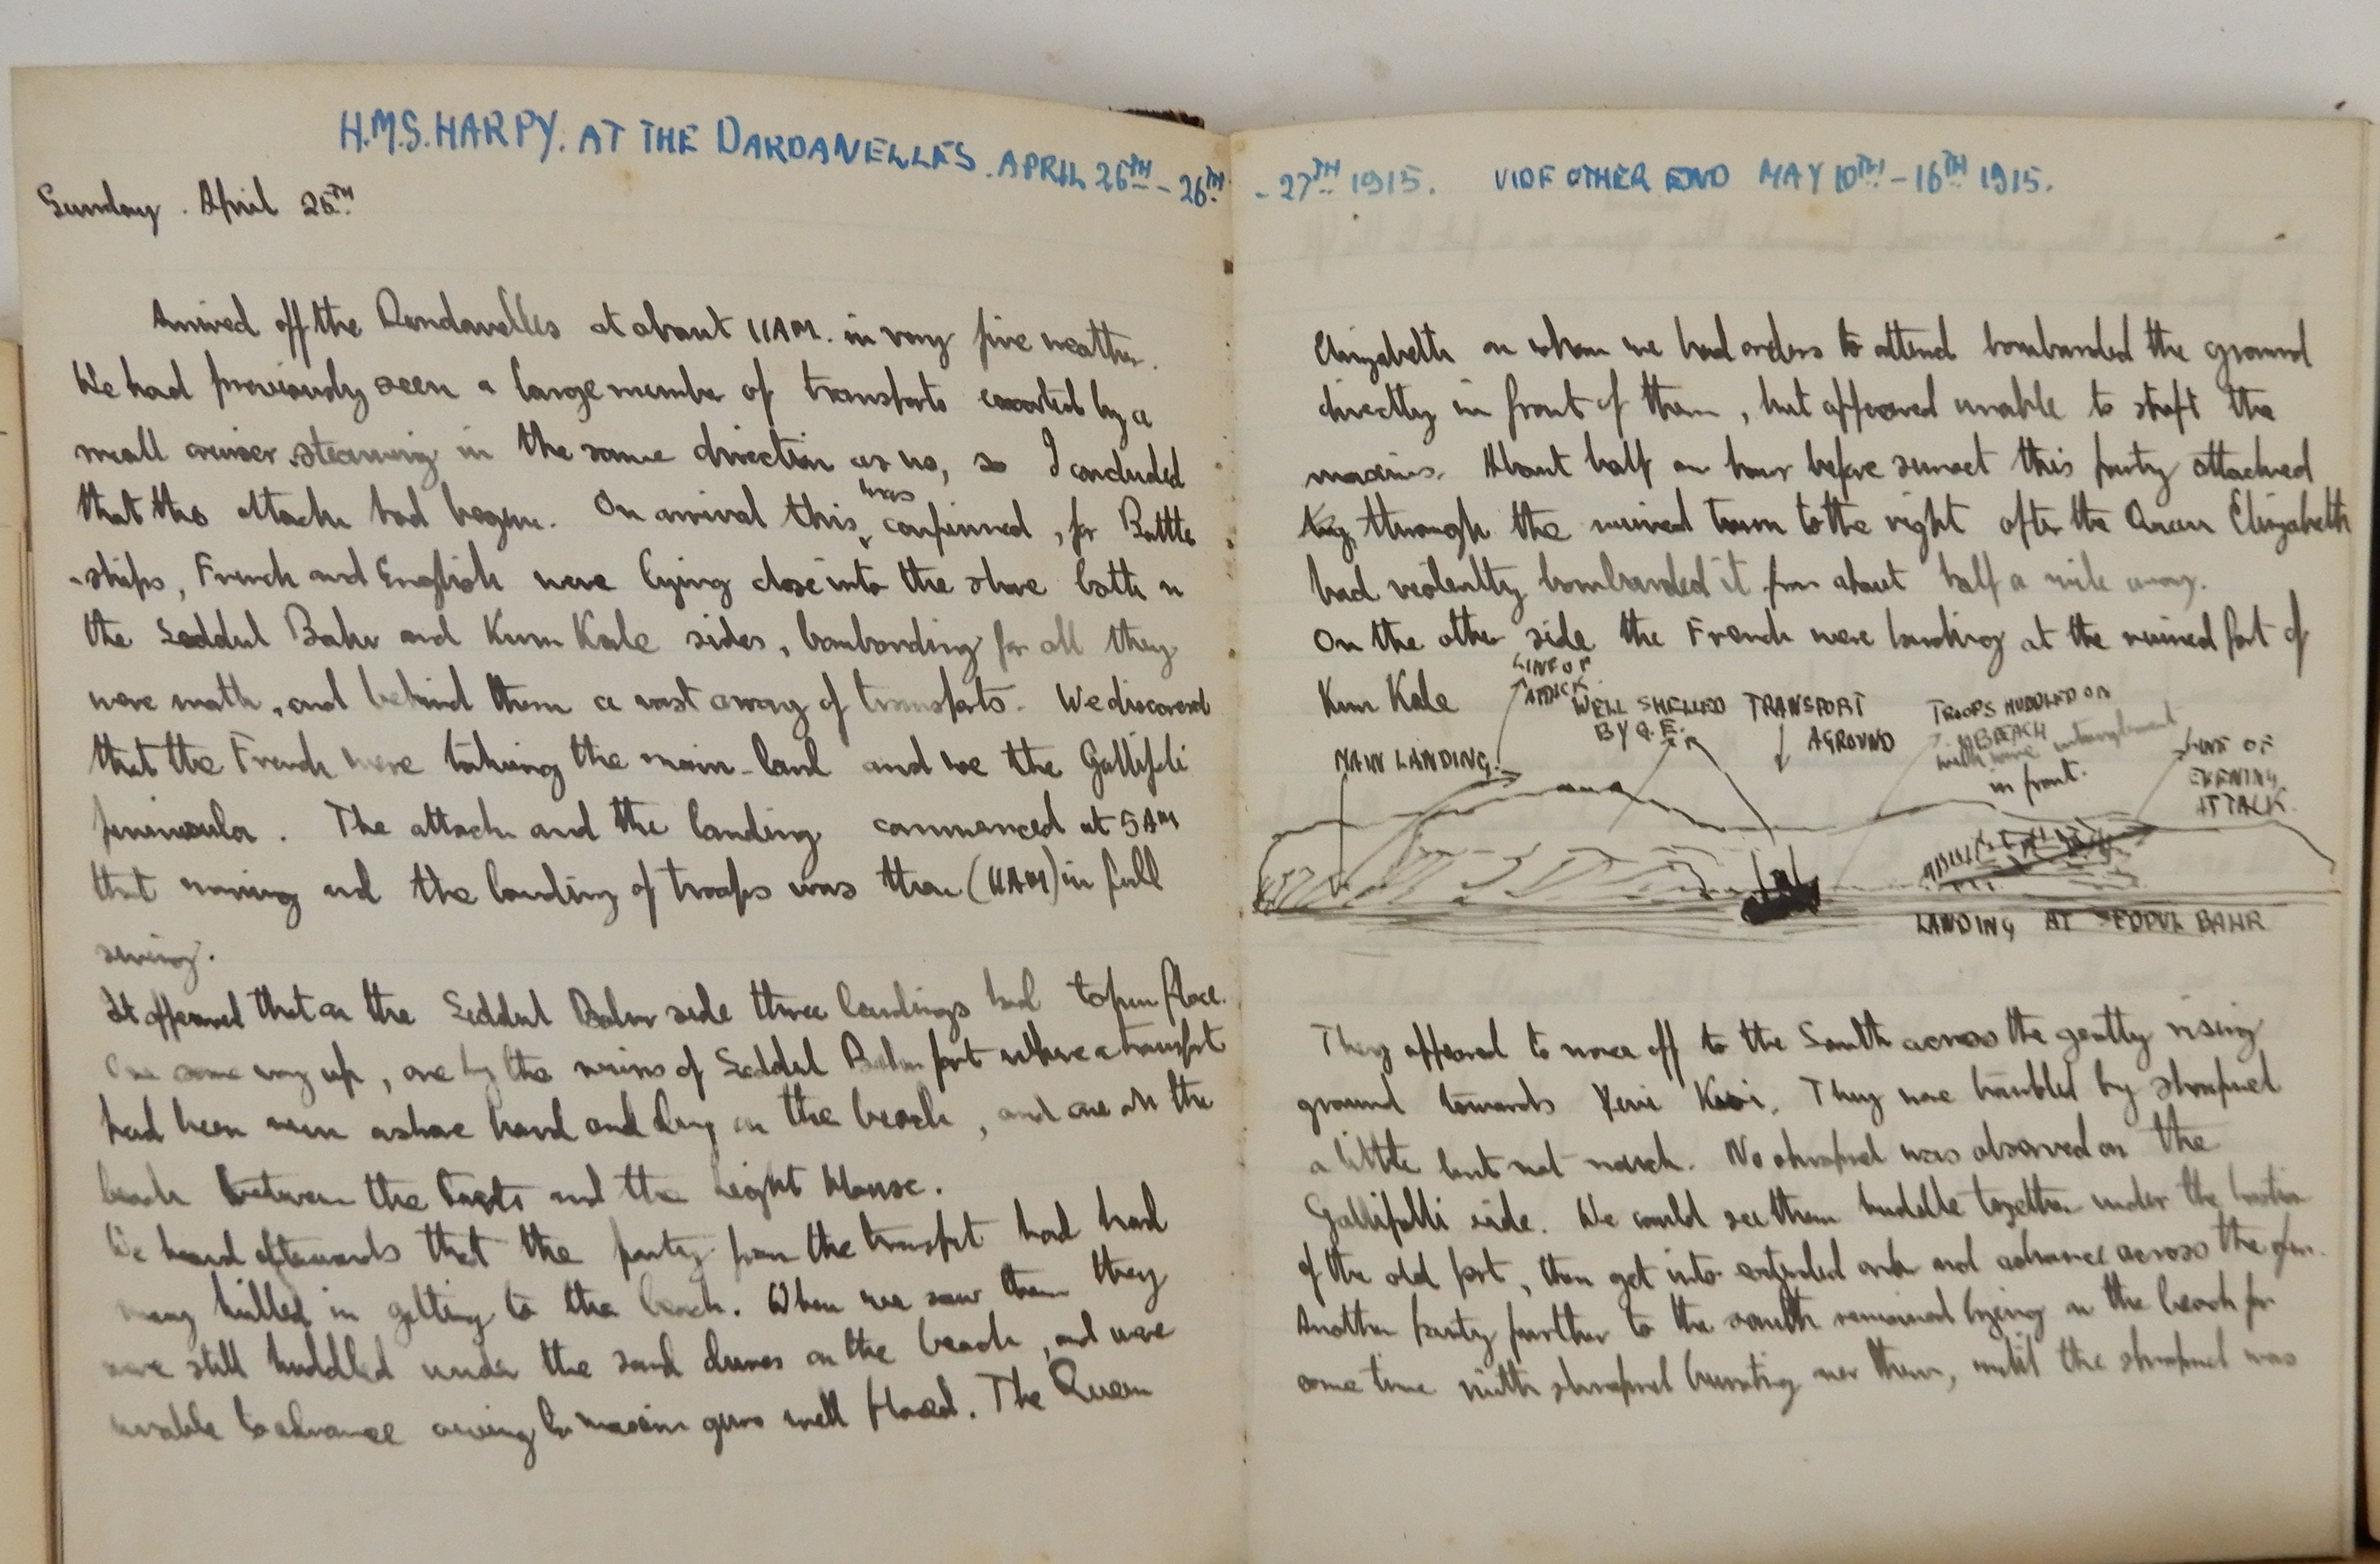 H.M.S. HARPY. AT THE DARDANELLES. APRIL 25TH - 26TH
Sunday. April 25TH
Arrived off the Dardanelles at about 11AM. in very fine weather.
We had previously seen a large number of transports escorted by a
small cruiser steaming in the same direction as us, so I concluded
that the attack had begun. On arrival this was confirmed, for Battle
-ships, French and English were lying close into the shore both on
the Seddul Bahr and Kum Kale sides, bombarding for all they
were worth, and behind them a vast array of transports. We discovered
that the French were taking the main-land and we the Gallipoli
peninsula. The attack and the landing commenced at 5AM
that morning and the landing of troops was then (11AM) in full
swing.
It appeared that on the Seddul Bahr side three landings had taken place.
One some way up, one by the ruins of Seddul Bahr fort where a transport
had been run ashore hard and dry on the beach, and one on the
beach between the Forts and the Light House.
We heard afterwards that the party from the transport had had
many killed in getting to the beach. When we saw them they
were still huddled under the sand dunes on the beach, and were
unable to advance owing to maxim guns well placed. The Queen
- 27TH 1915. VIDE OTHER END MAY 10TH - 16TH 1915.
Elizabeth on whom we had orders to attend bombarded the ground
directly in front of them, but appeared unable to shift the
maxims. About half an hour before sunset this party attacked
through the ruined town to the right after the Queen Elizabeth
had violently bombarded it from about half a mile away.
On the other side the French were landing at the ruined fort of
Kum Kale
LINE OF
ATTACK.
WELL SHELLED
BY Q.E.
TRANSPORT
AGROUND
TROOPS HUDDLED ON
BEACH
with wire entanglement
in front.
MAIN LANDING.
LINE OF
EVENING
ATTACK.
LANDING AT SEDDUL BAHR
They appeared to move off to the South across the gently rising
ground towards Yeni Keui. They were troubled by shrapnel
a little but not much. No shrapnel was observed on the
Gallipolli side. We could see them huddle together under the bastion
of the old fort, then get into extended order and advance across the
Another party further to the south remained lying on the beach for
some time with shrapnel bursting over them, until the shrapnel was